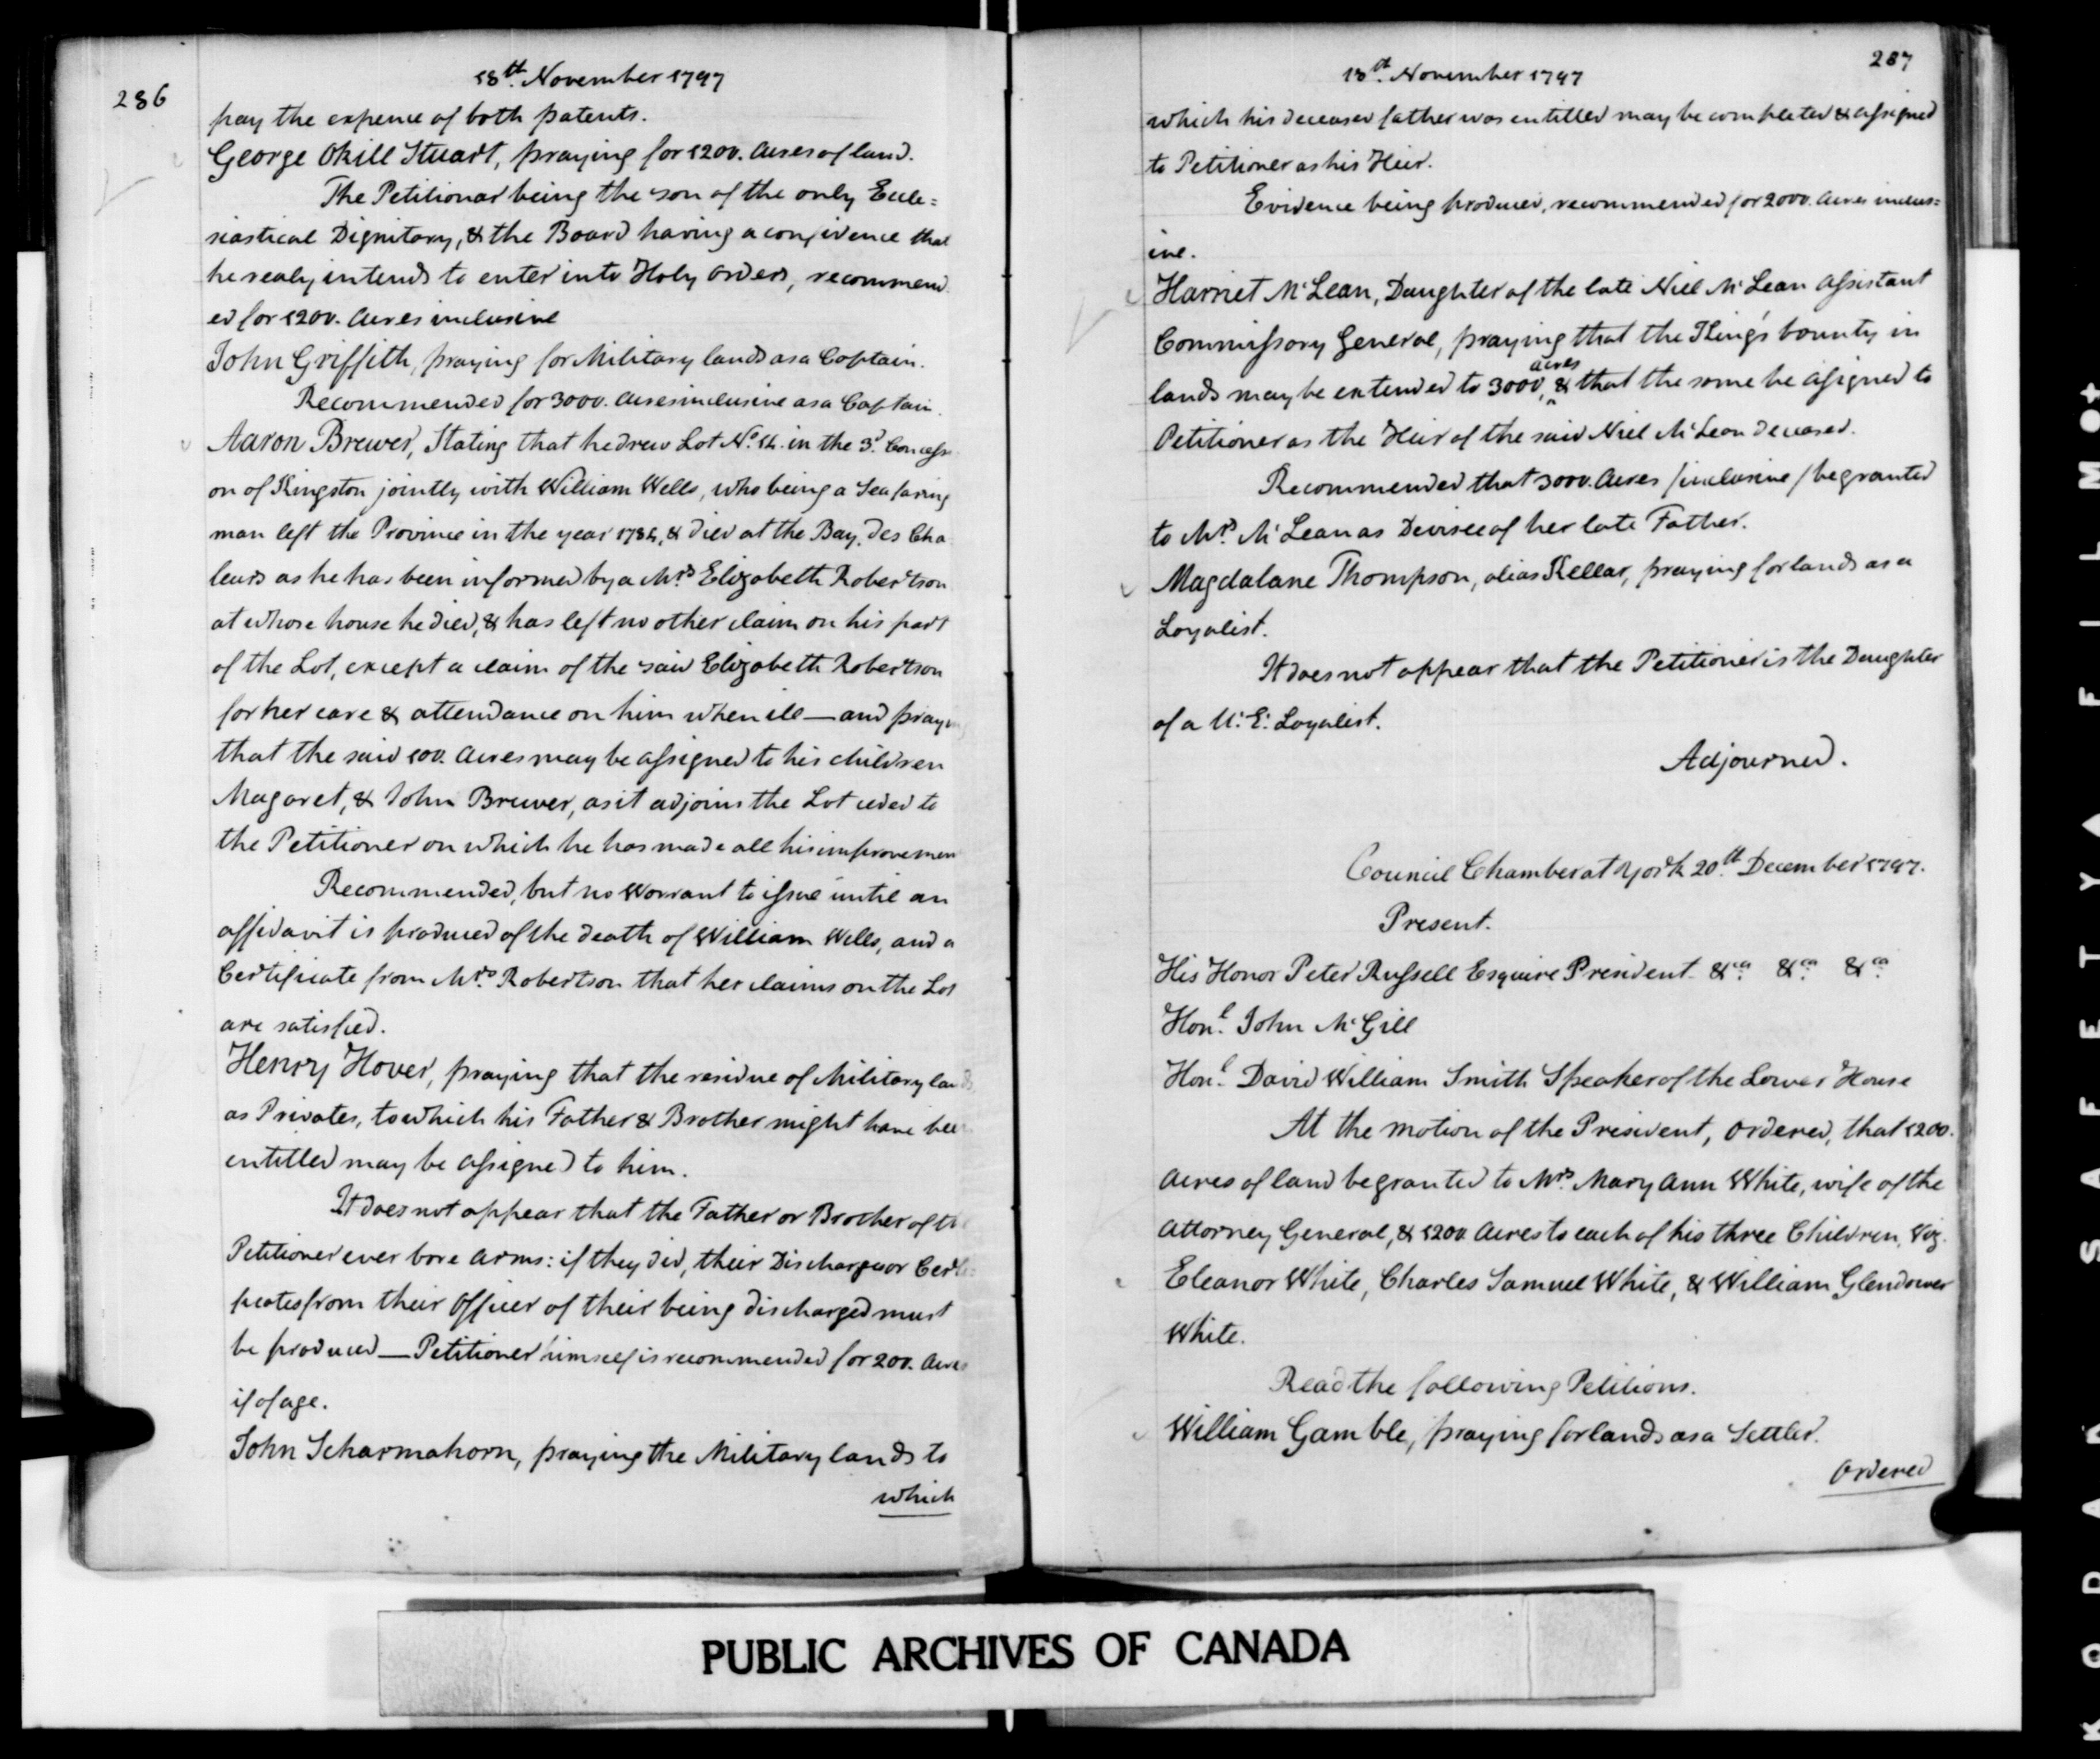 286
18th. November 1797
pay the expence of both patents.
George Okill Stuart, praying for 1200. Acres of land.
The Petitioner being the son of the only Eccle=
siastical Dignitary, & the Board having a confidence that
he realy intends to enter into Holy Orders, recommend
ed for 1200. Acres inclusive
John Griffith, praying for Military lands as a Captain.
Recommended for 3000. Acres inclusive as a Captain.
Aaron Brewer, Stating that he drew Lot No. 14. in the 3d. Concessi
on of Kingston jointly with William Wells, who being a Seafaring
man left the Province in the year 1784, & died at the Bay des Cha
leurs as he has been informed by a Mrs. Elizabeth Robertson
at whose house he died, & has left no other claim on his part
of the Lot, except a claim of the said Elizabeth Robertson
for her care & attendance on him when ill — and praying
that the said 100. Acres may be assigned to his children
Magaret, & John Brewer, as it adjoins the Lot ceded to
the Petitioner on which he has made all his improvemen
Recommended, but no Warrant to issue until an
affidavit is produced of the death of William Wells, and a
Certificate from Mrs. Robertson that her claims on the Lot
are satisfied.
Henry Hover, praying that the residue of Military lands
as Privates, to which his Father & Brother might have been
entitled may be assigned to him.
It does not appear that the Father or Brother of the
Petitioner ever bore Arms: if they did, their Discharges or Certi=
ficates from their Officer of their being discharged must
be produced — Petitioner himself is recommended for 200. Acres
if of age.
John Scharmahorn, praying the Military lands to
which
287
18th. November 1797
which his deceased father was entitled may be compleated & assigned
to Petitioner as his Heir.
Evidence being produced, recommended for 2000. Acres inclus=
ive.
Harriet McLean, Daughter of the late Niel McLean Assistant
Commissary General, praying that the King's bounty in
lands may be extended to 3000, acres & that the same be assigned to
Petitioner as the Heir of the said Niel McLean deceased.
Recommended that 3000. Acres /inclusive/ be granted
to Ms. McLean as Devisee of her late Father.
Magdalane Thompson, alias Kellar, praying for lands as a
Loyalist.
It does not appear that the Petitioner is the Daughter
of a U. E. Loyalist.
Adjourned.
Council Chamber at York 20th. December 1797.
Present.
His Honor Peter Russell Esquire President &ca. &ca. &ca.
Honl. John McGill
Honl. David William Smith Speaker of the Lower House
At the motion of the President, Ordered, that 1200.
Acres of land be granted to Mrs. Mary Ann White, wife of the
Attorney General, & 1200 Acres to each of his three Children, Viz.
Eleanor White, Charles Samuel White, & William Glendower
White.
Read the following Petitions.
William Gamble, praying for lands as a Settler.
Ordered
PUBLIC ARCHIVES OF CANADA